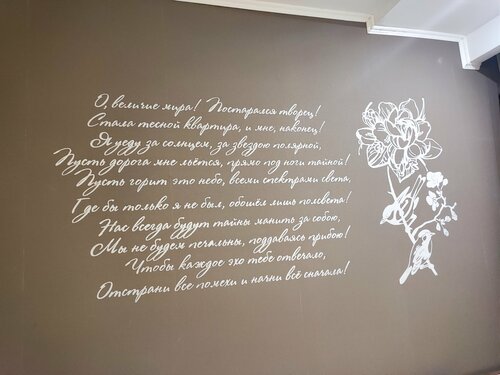 О, величие мира! Постарался творец!
Стала тесной квартира, и мне, наконец!
Я уеду за солнцем, за звездою полярной,
Пусть дорога мне льётся, прямо под ноги тайной!
Пусть горит это небо, всеми спектрами света,
Где бы только я не был, обошёл лишь полсвета!
Нас всегда будут тайны манить за собою,
Мы не будем печальны, поддаваясь прибою!
Чтобы каждое эхо тебе отвечало,
Отстрани все помехи и начни всё сначала!